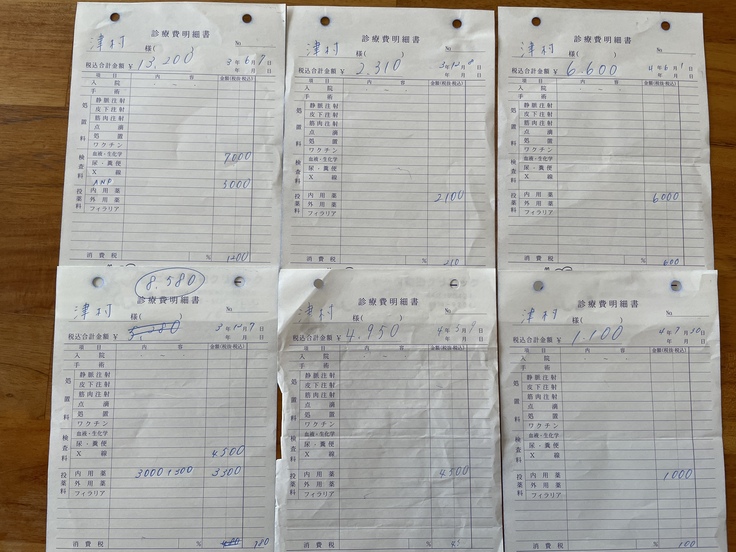 診療費明細書
津村 様( ) No
税込合計金額 ¥ 13,200 3年6月7日
項目 内容 金額(税抜・税込)
入院
手術
処置料 静脈注射
皮下注射
筋肉注射
点滴
処置
ワクチン
検査料 血液・生化学 7000
尿・糞便
X線
ANP 3000
投薬料 内用薬
外用薬
フィラリア
消費税 % 1200
診療費明細書
津村 様( ) No
税込合計金額 ¥ 2,310 3年12月 日
項目 内容 金額(税抜・税込)
入院
手術
処置料 静脈注射
皮下注射
筋肉注射
点滴
処置
ワクチン
検査料 血液・生化学
尿・糞便
X線
投薬料 内用薬 2100
外用薬
フィラリア
消費税 % 210
診療費明細書
津村 様( ) No
税込合計金額 ¥ 6,600 4年6月1日
項目 内容 金額(税抜・税込)
入院
手術
処置料 静脈注射
皮下注射
筋肉注射
点滴
処置
ワクチン
検査料 血液・生化学
尿・糞便
X線
投薬料 内用薬 6000
外用薬
フィラリア
消費税 % 600
8,580
診療費明細書
津村 様( ) No
税込合計金額 ¥ 3年12月7日
項目 内容 金額(税抜・税込)
入院
手術
処置料 静脈注射
皮下注射
筋肉注射
点滴
処置
ワクチン
検査料 血液・生化学
尿・糞便
X線 4500
投薬料 内用薬 3000+300 3300
外用薬
フィラリア
消費税 % 780
診療費明細書
津村 様( ) No
税込合計金額 ¥ 4,950 4年3月1日
項目 内容 金額(税抜・税込)
入院
手術
処置料 静脈注射
皮下注射
筋肉注射
点滴
処置
ワクチン
検査料 血液・生化学
尿・糞便
X線
投薬料 内用薬 4500
外用薬
フィラリア
消費税 %
診療費明細書
津村 様( ) No
税込合計金額 ¥ 1,100 4年7月10日
項目 内容 金額(税抜・税込)
入院
手術
処置料 静脈注射
皮下注射
筋肉注射
点滴
処置
ワクチン
検査料 血液・生化学
尿・糞便
X線
投薬料 内用薬 1000
外用薬
フィラリア
消費税 % 100